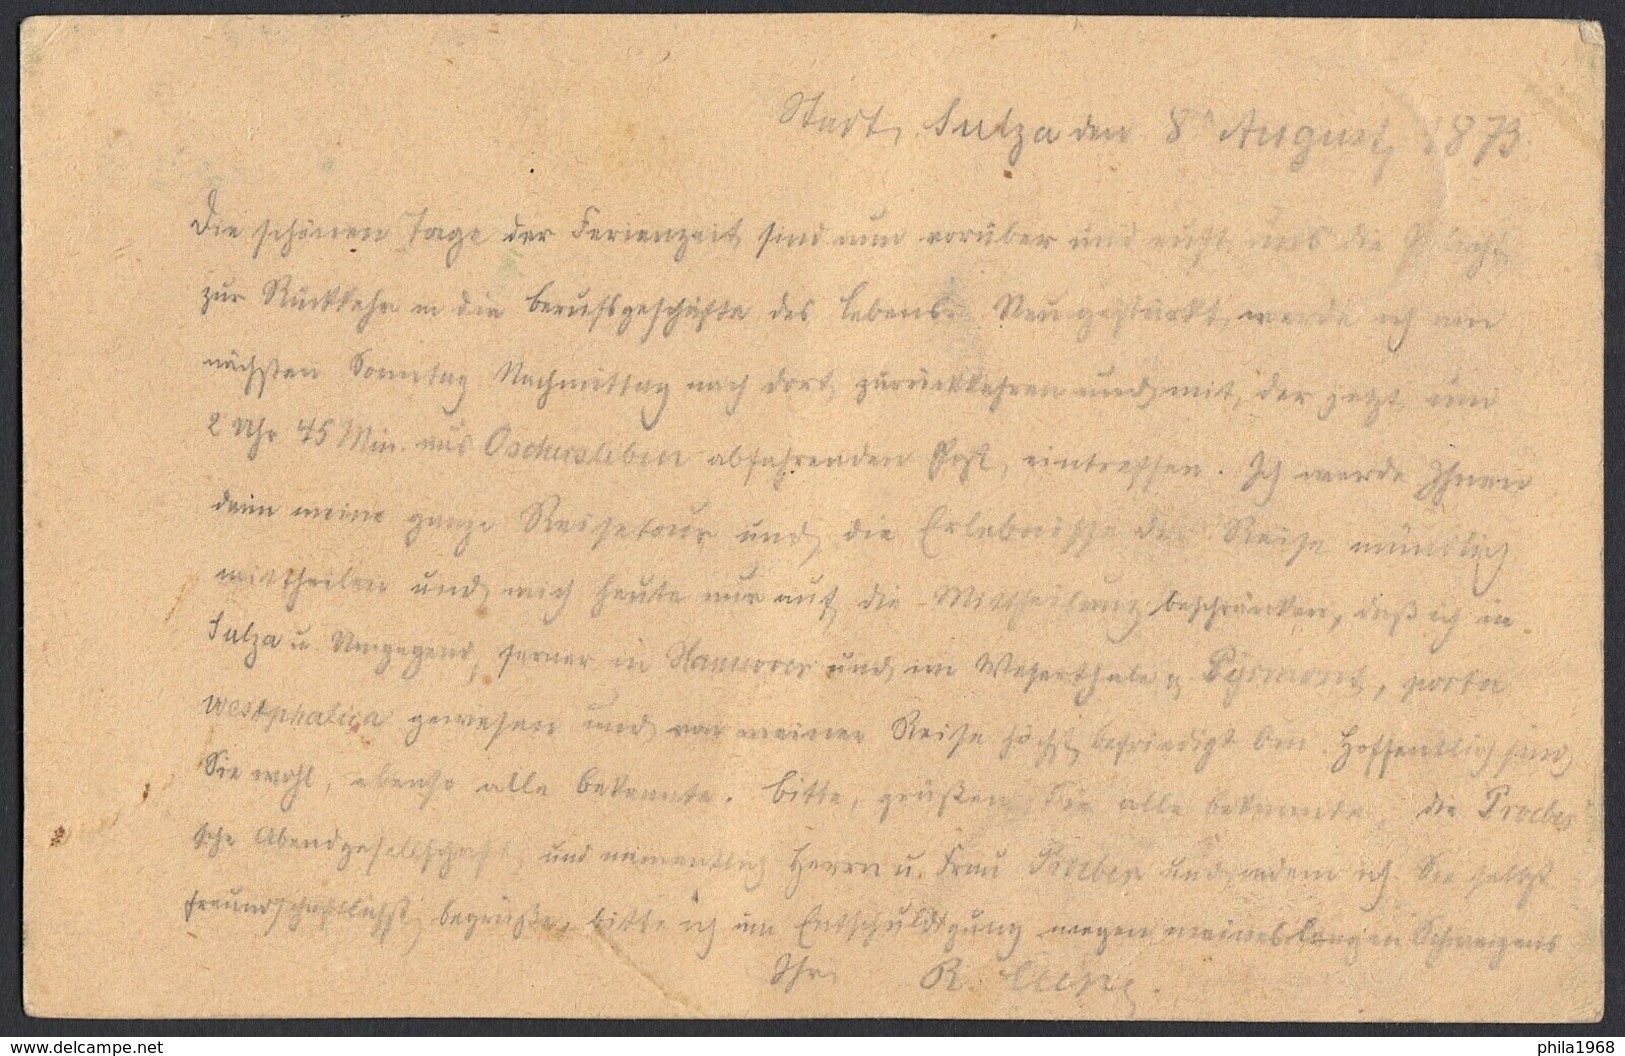 Stadt Sulza den 8t August 1873.
Die schönen Tage der Ferienzeit sind nun vorüber und ruft uns die Pflicht
zur Rückkehr in die Berufsgeschäfte des Lebens. Neu gestärkt werde ich am
nächsten Sonntag Nachmittag nach dort zurückkehren und mit der jetzt um
2 Uhr 45 Min. aus Oschersleben abfahrenden Post eintreffen. Ich werde Ihnen
dann meine ganze Reisetour und die Erlebnisse der Reise mündlich
mittheilen und mich heute nur auf die Mittheilung beschränken, daß ich in
Sulza u. Umgegend, ferner in Hannover und im Weserthale, Pyrmont, porta
westphalica gewesen und von meiner Reise höchst befriedigt bin. Hoffentlich sind
Sie wohl, ebenso alle Bekannte. Bitte, grüßen Sie alle Bekannte, die
sche Abendgesellschaft und namentlich Herrn u. Frau und indem ich Sie selbst
freundschaftlichst begrüße, bitte ich um Entschuldigung wegen meines langen Schweigens
Ihr R.
phila1968
www.delcampe.net